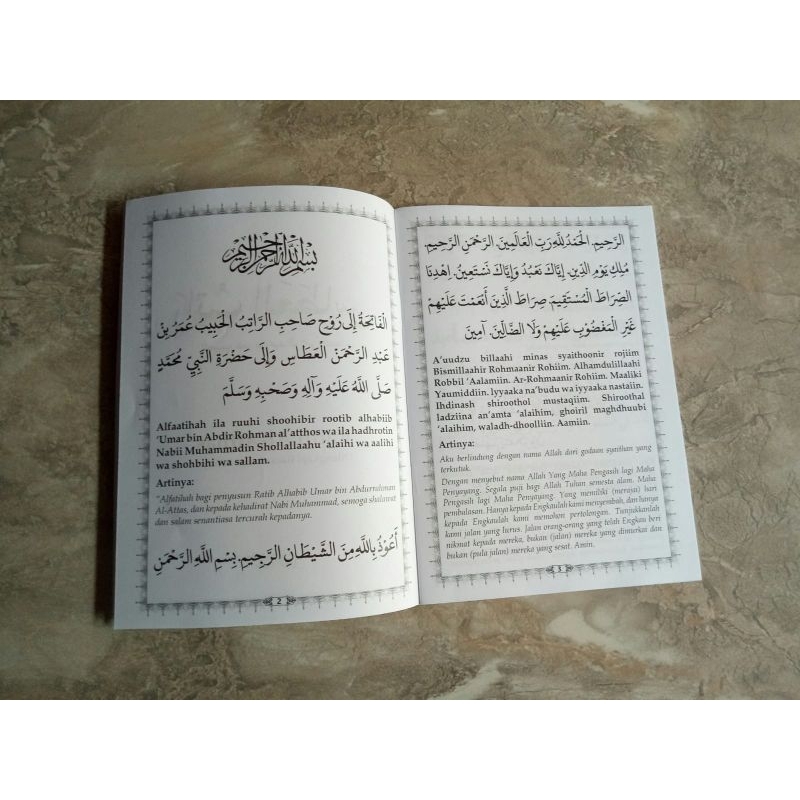 بسم الله الرحمن الرحيم
الْفَاتِحَةُ إِلَى رُوْحِ صَاحِبِ الرَّاتِبُ الْحَبِيْبُ عُمَرُ بِنْ
عَبْدِ الرَّحْمَنْ الْعَطَاسِ وَإِلَى حَضْرَةِ النَّبِيِّ مُحَمَّدٍ
صَلَّى اللهُ عَلَيْهِ وَآلِهِ وَصَحْبِهِ وَسَلَّمَ
Alfaatihah ila ruuhi shoohibir rootib alhabiib
'Umar bin Abdir Rohman al'atthos wa ila hadhrotin
Nabii Muhammadin Shollallaahu 'alaihi wa aalihi
wa shohbihi wa sallam.
Artinya:
"Alfatihah bagi penyusun Ratib Alhabib Umar bin Abdurrahman
Al-Attas, dan kepada kehadirat Nabi Muhammad, semoga shalawat
dan salam senantiasa tercurah kepadanya.
أَعُوْذُ بِاللَّهِ مِنَ الشَّيْطَانِ الرَّجِيْمِ. بِسْمِ اللَّهِ الرَّحْمَنِ
2
الرَّحِيْمِ. الْحَمْدُ لِلَّهِ رَبِّ الْعَالَمِيْنَ. الرَّحْمَنِ الرَّحِيْمِ.
مَلِكِ يَوْمِ الدِّيْنِ. إِيَّاكَ نَعْبُدُ وَإِيَّاكَ نَسْتَعِيْنُ. اِهْدِنَا
الصِّرَاطَ الْمُسْتَقِيْمَ. صِرَاطَ الَّذِيْنَ أَنْعَمْتَ عَلَيْهِمْ
غَيْرِ الْمَغْضُوْبِ عَلَيْهِمْ وَلَا الضَّالِّيْنَ. آمِيْنَ
A'uudzu billaahi minas syaithoonir rojiim
Bismillaahir Rohmaanir Rohiim. Alhamdulillaahi
Robbil 'Aalamiin. Ar-Rohmaanir Rohiim. Maaliki
Yaumiddiin. Iyyaaka na'budu wa iyyaaka nastaiin.
Ihdinash shiroothol mustaqiim. Shiroothal
ladziina an'amta 'alaihim, ghoiril maghdhuubi
'alaihim, waladh-dhoolliin. Aamiin.
Artinya:
Aku berlindung dengan nama Allah dari godaan syaithan yang
terkutuk.
Dengan menyebut nama Allah Yang Maha Pengasih lagi Maha
Penyayang. Segala puji bagi Allah Tuhan semesta alam. Maha
Pengasih lagi Maha Penyayang. Yang memiliki (merajai) hari
pembalasan. Hanya kepada Engkaulah kami menyembah, dan hanya
kepada Engkaulah kami memohon pertolongan. Tunjukkanlah
kami jalan yang lurus. Jalan orang-orang yang telah Engkau beri
nikmat kepada mereka, bukan (jalan) mereka yang dimurkai dan
bukan (pula jalan) mereka yang sesat. Amin.
3